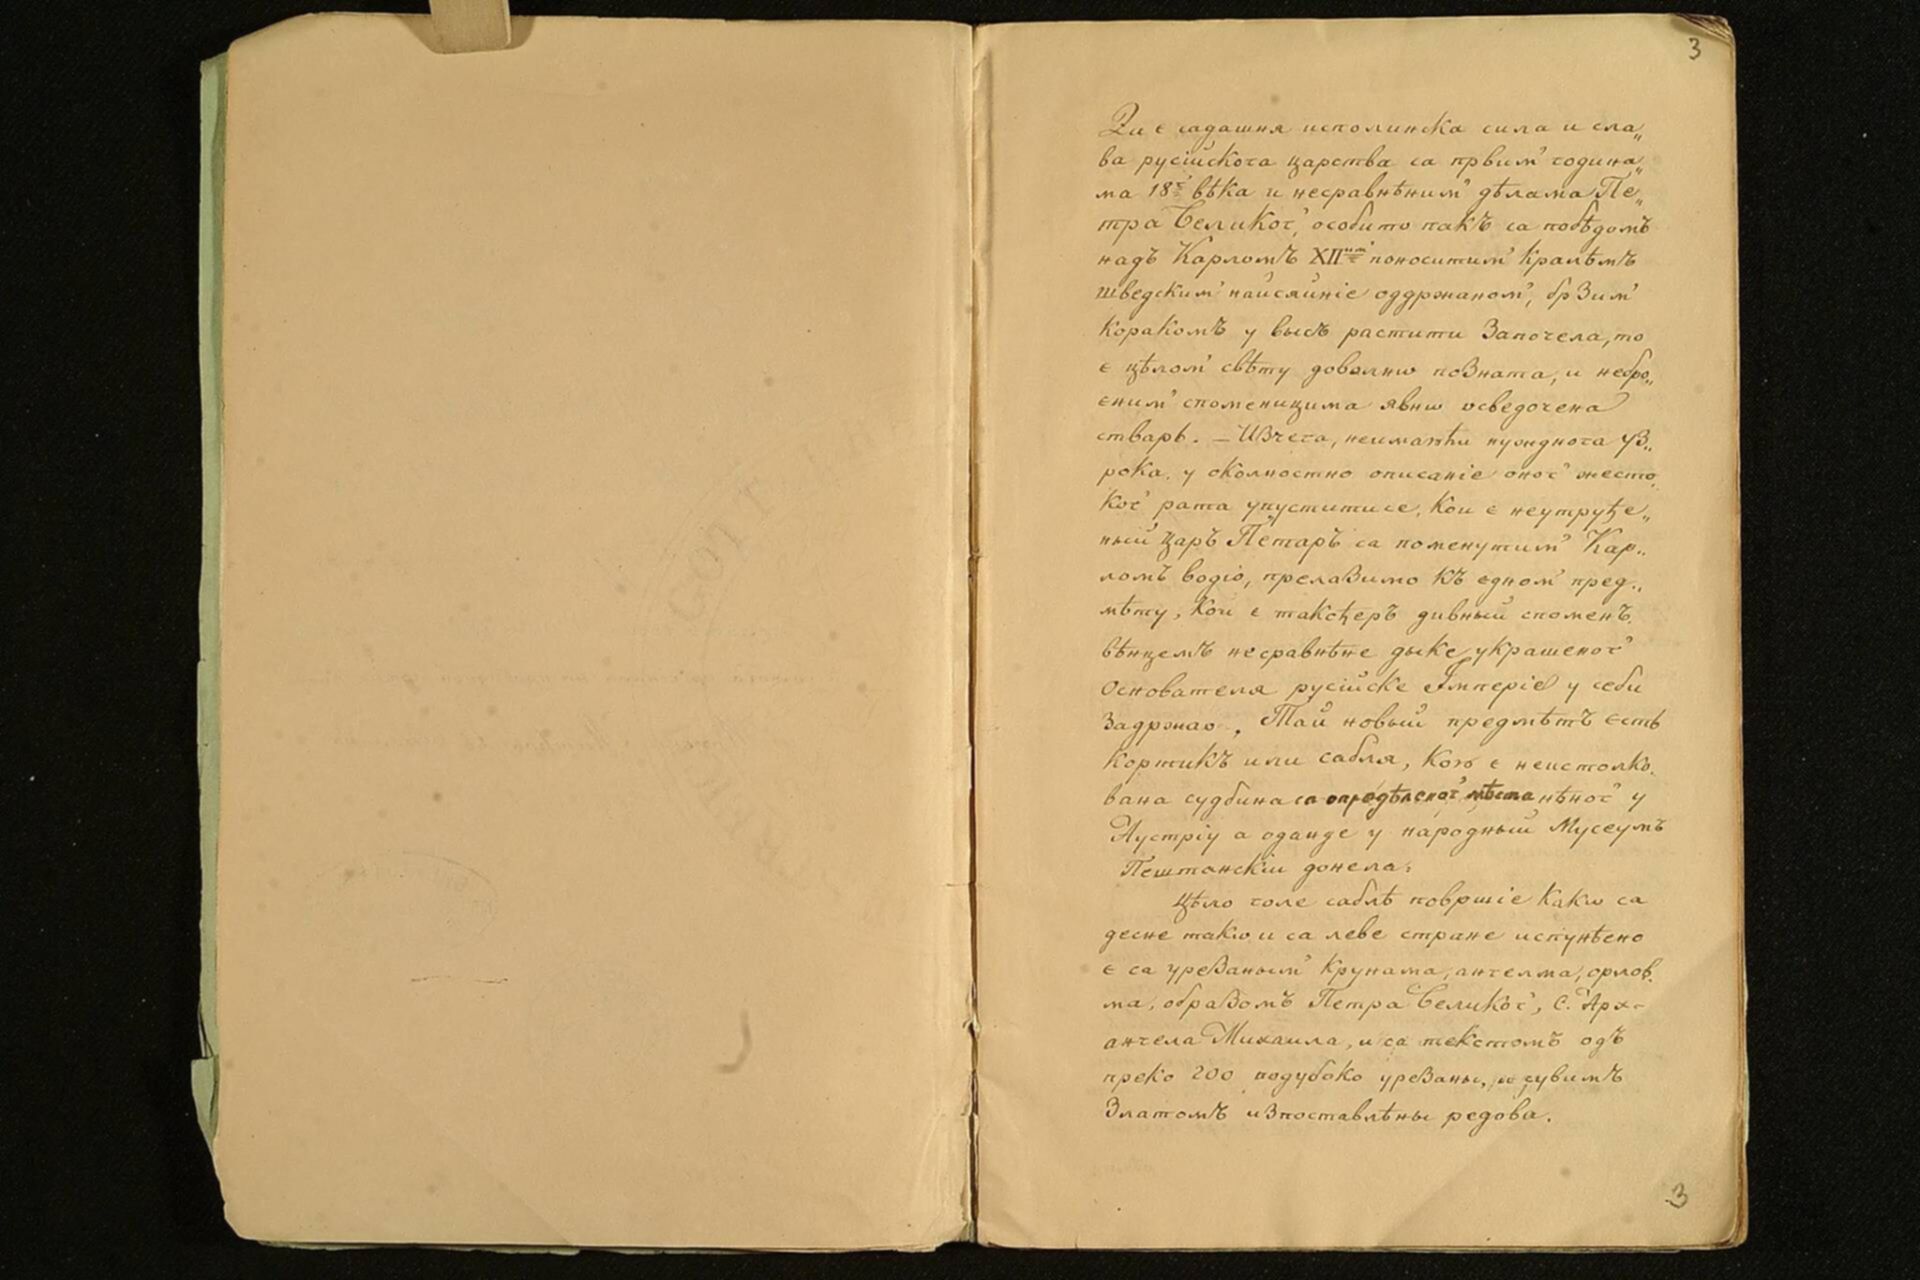 3
Да є садашня исполинска сила и сла„
ва русійскога царства са првим' година„
ма 18г вѣка и несравнѣним' дѣлама Пе„
тра Великог', особито пакъ са побѣдомъ
надъ Карломъ XIIим' поноситим' кралѣмъ
шведским' найсяйніє оддржаном', брзим'
коракомъ у высъ растити започела, то
є цѣлом' свѣту довольнѡ позната, и небро„
єним' споменицима явнѡ осведочена
стварь. — Изчега, неимаюћи нужднога уз„
рока, у околностно описаніє оног' жесто„
ког' рата упуститисе, кои є неутруђе„
ный Царъ Петаръ са поменутим' Кар„
ломъ водіо, прелазимо къ едном' пред„
мѣту, кои є такођеръ дивный споменъ
вѣнцемъ несравнѣне дыке украшеног'
Основателя русійске Імперіє у себи
задржао. Тай новый предмѣтъ єсть
кортикъ или сабля, кою є неистолко„
вана судбина са опредѣленог' мѣста нѣног' у
Аустрію а оданде у народный Мусеумъ
Пештанскій донела.
Цѣло голе саблѣ површіє какѡ са
десне такѡ и са леве стране испунѣно
є са урезаным' крунама, ангелма, орлов„
ма, образомъ Петра Великог', С. Арх-
ангела Михаила, и са текстомъ одъ
преко 200 подубоко урезаны, и сувимъ
златомъ изпоставлѣны редова.
3